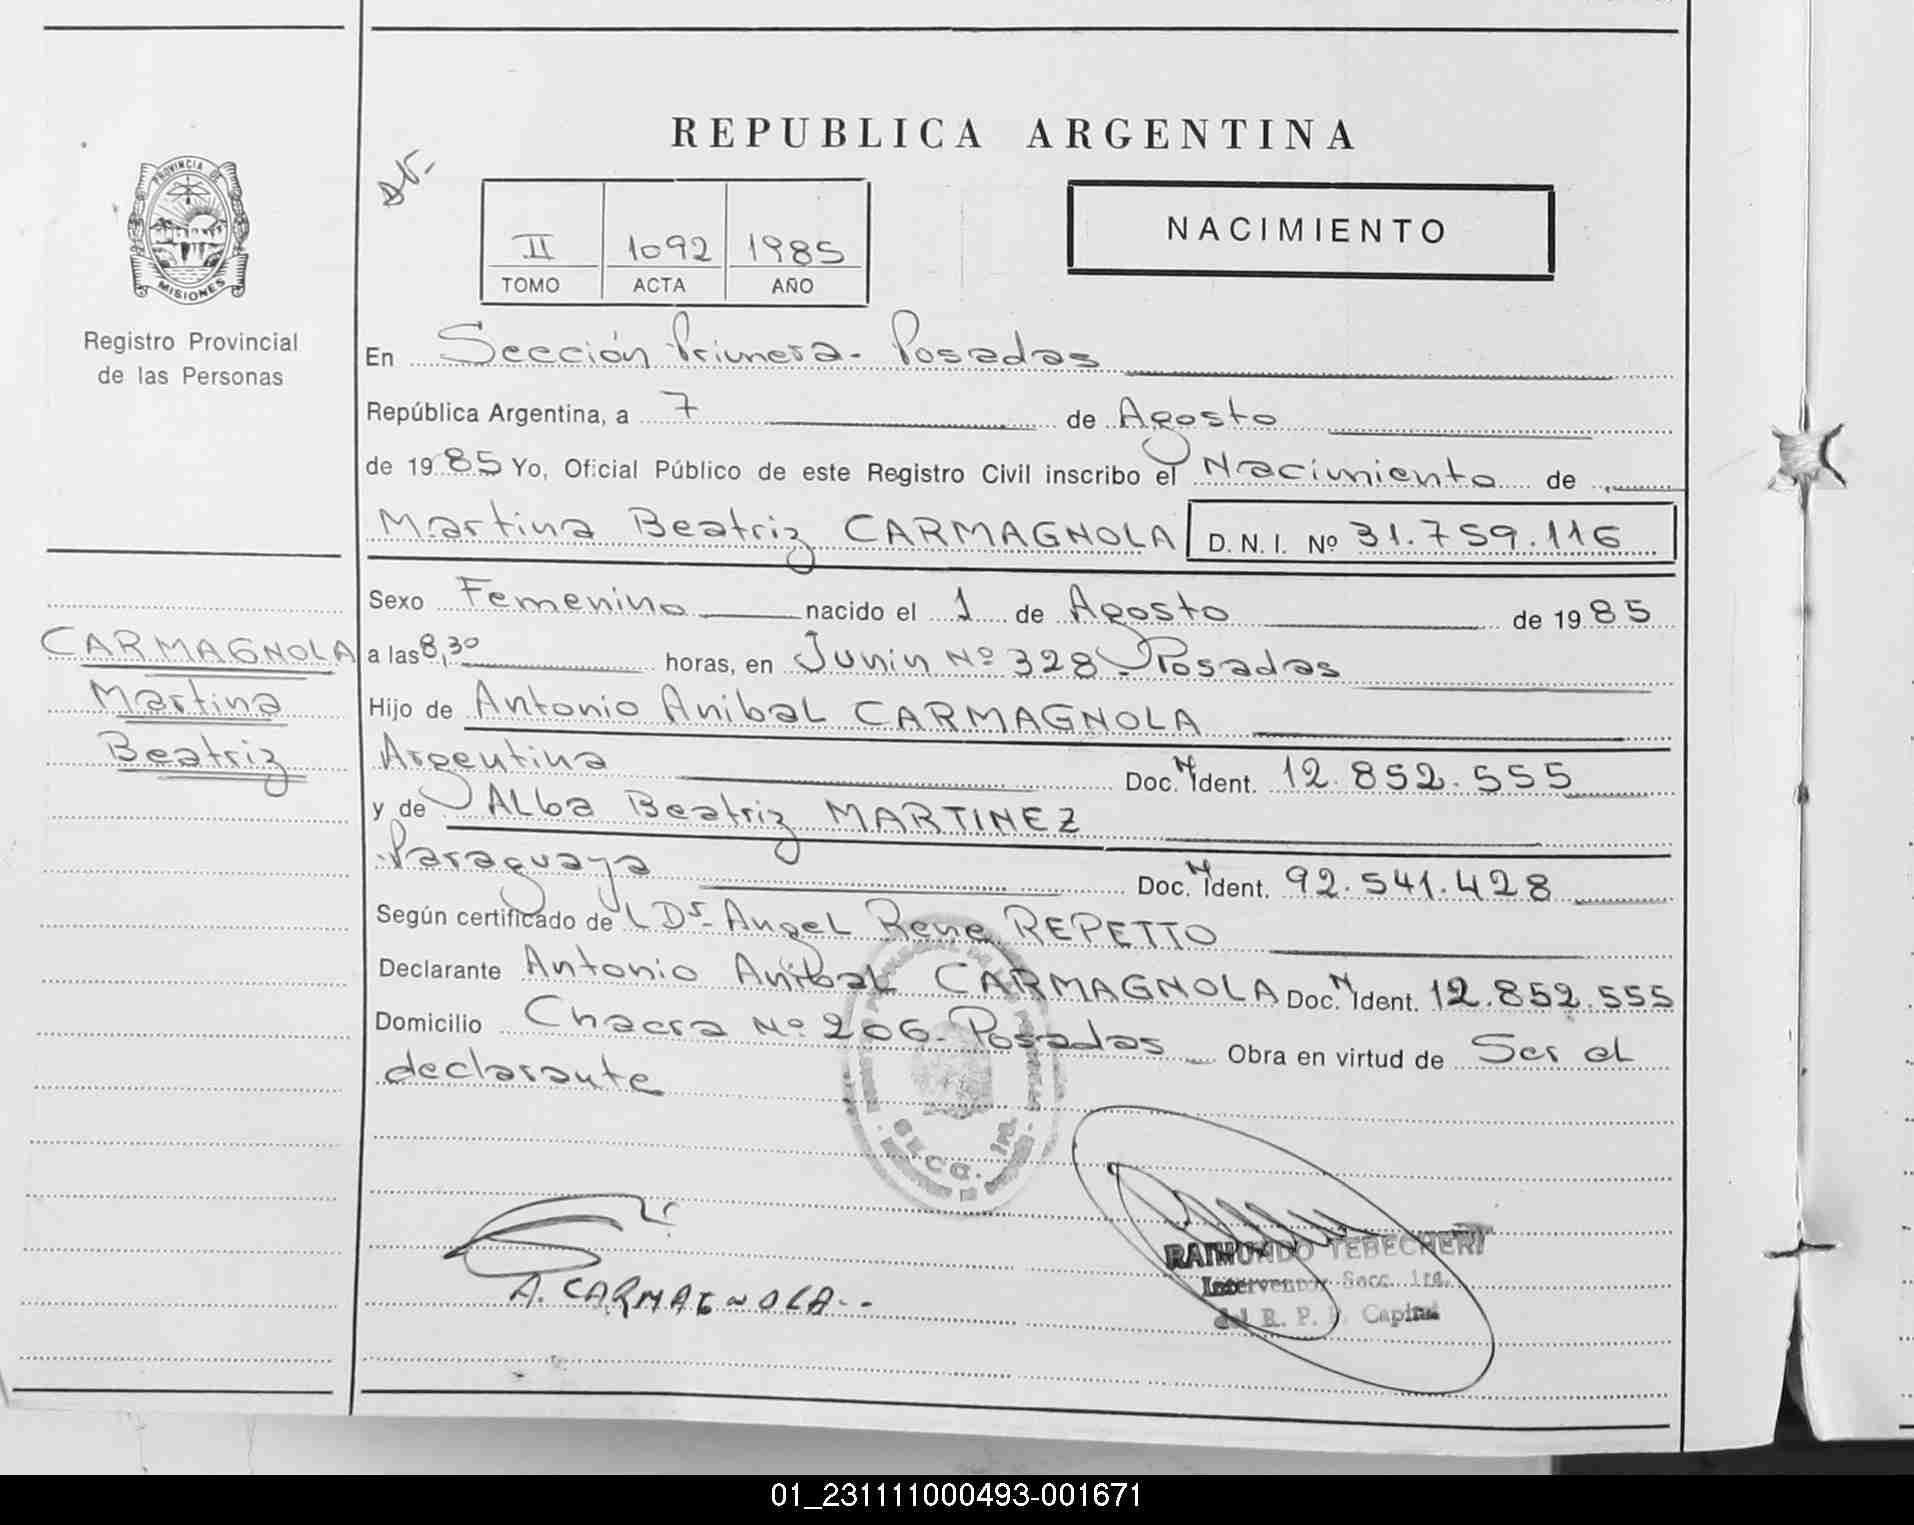 REPUBLICA ARGENTINA
PROVINCIA DE
MISIONES
Registro Provincial
de las Personas
II 1092 1985
TOMO ACTA AÑO
NACIMIENTO
En Sección Primera - Posadas
República Argentina, a 7 de Agosto
de 1985 Yo, Oficial Público de este Registro Civil inscribo el Nacimiento de
Martina Beatriz CARMAGNOLA D. N. I. Nº 31.759.116
Sexo Femenino nacido el 1 de Agosto de 1985
a las 8,30 horas, en Junin Nº 328 - Posadas
Hijo de Antonio Anibal CARMAGNOLA
Argentina Doc. N Ident. 12.852.555
y de Alba Beatriz MARTINEZ
Paraguaya Doc. N Ident. 92.541.428
Según certificado de L Dr. Angel Rene REPETTO
Declarante Antonio Anibal CARMAGNOLA Doc. N Ident. 12.852.555
Domicilio Chacra Nº 206 - Posadas Obra en virtud de Ser el
declarante
CARMAGNOLA
Martina
Beatriz
SECC. 1ra.
A. CARMAGNOLA
RAIMUNDO TEBECHERI
Interventor Secc. 1ra.
del R. P. P. Capital
01_231111000493-001671